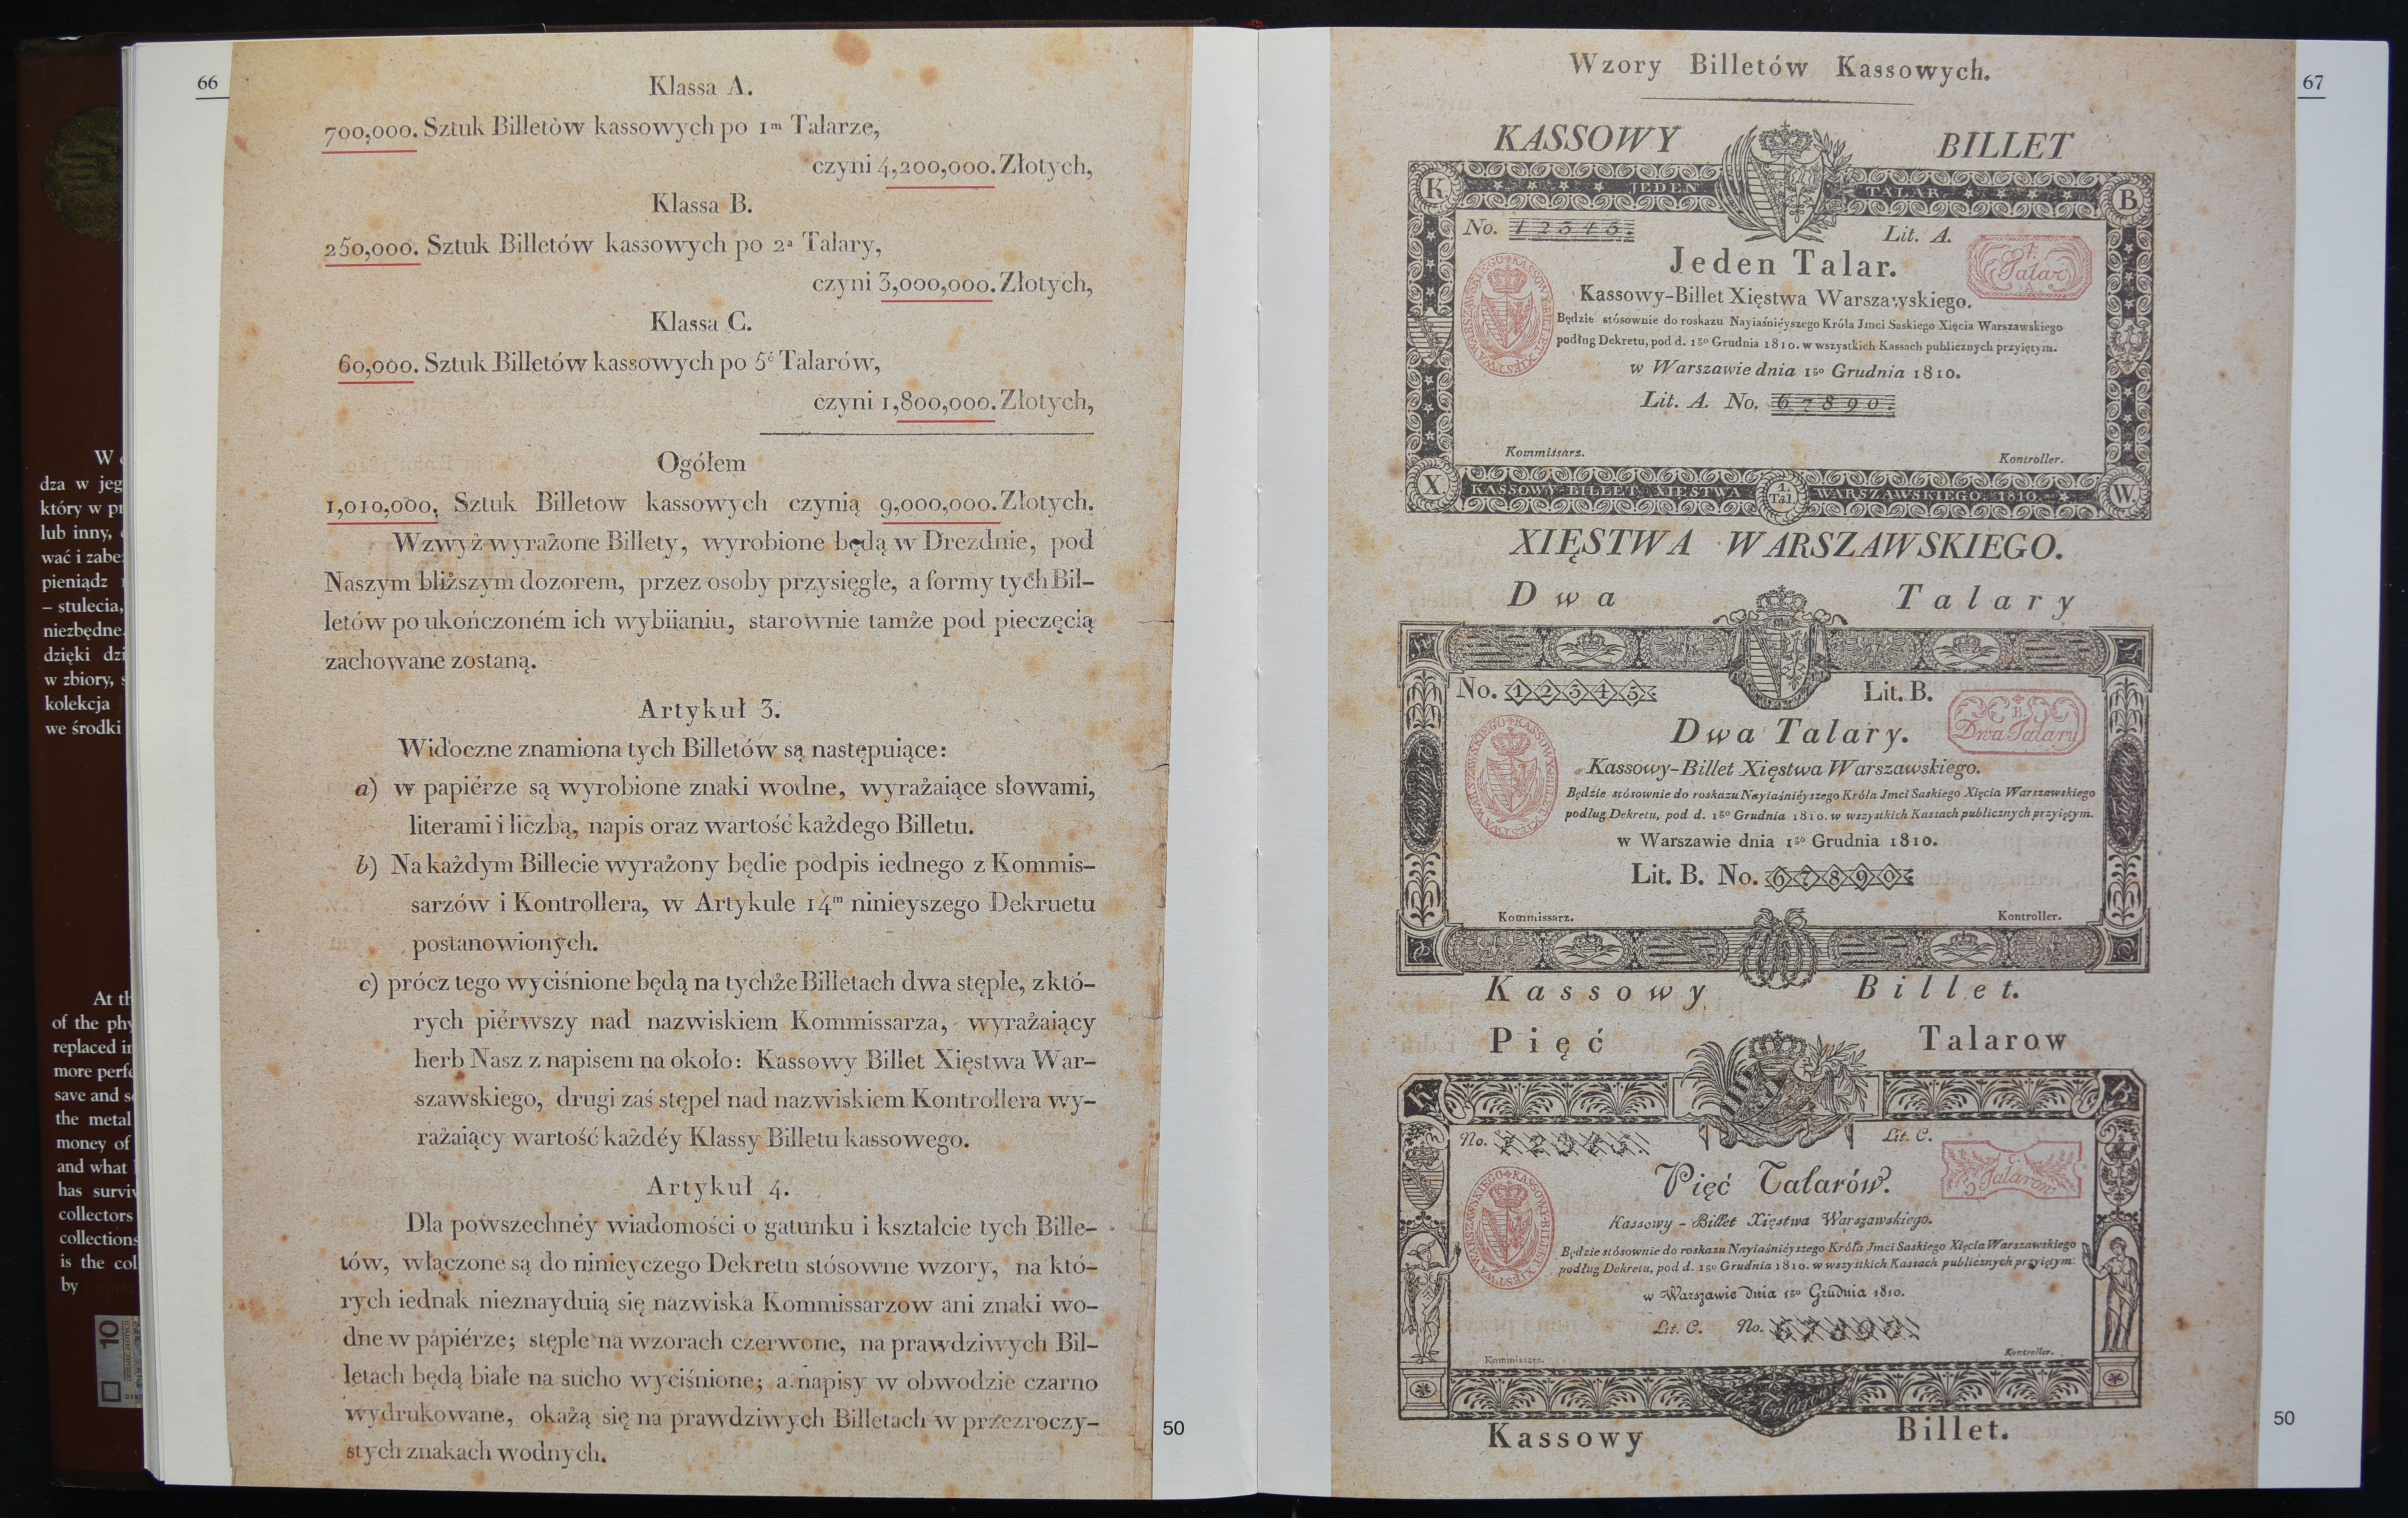 W
dza w jeg
który w pr
lub inny,
wać i zabe
pieniądz
– stulecia,
niezbędne
dzięki dzi
w zbiory,
kolekcja
we środki
At th
of the phy
replaced in
more perfe
save and s
the metal
money of
and what
has surviv
collectors
collections
is the col
by
10
66
Klassa A.
700,000. Sztuk Billetòw kassowych po 1m Talarze,
czyni 4,200,000. Złotych,
Klassa B.
250,000. Sztuk Billetów kassowych po 2a Talary,
czyni 3,000,000. Złotych,
Klassa C.
60,000. Sztuk Billetów kassowych po 5ć Talarów,
czyni 1,800,000. Złotych,
Ogółem
1,010,000. Sztuk Billetow kassowych czynią 9,000,000. Złotych.
Wzwyż wyrażone Billety, wyrobione będą w Dreznie, pod
Naszym bliższym dozorem, przez osoby przysięgłe, a formy tych Bil-
letów po ukończoném ich wybiianiu, starownie tamże pod pieczęcią
zachowane zostaną.
Artykuł 3.
Widoczne znamiona tych Billetów są następuiące:
a) w papiérze są wyrobione znaki wodne, wyrażaiące słowami,
literami i liczbą, napis oraz wartość każdego Billetu.
b) Na każdym Billecie wyrażony będie podpis iednego z Kommis-
sarzów i Kontrollera, w Artykule 14m ninieyszego Dekruetu
postanowionych.
c) prócz tego wyciśnione będą na tychże Billetach dwa stęple, z któ-
rych piérwszy nad nazwiskiem Kommissarza, wyrażaiący
herb Nasz z napisem na około: Kassowy Billet Xięstwa War-
szawskiego, drugi zaś stępel nad nazwiskiem Kontrollera wy-
rażaiący wartość każdéy Klassy Billetu kassowego.
Artykuł 4.
Dla powszechnéy wiadomości o gatunku i kształcie tych Bille-
tów, włączone są do ninieyczego Dekretu stósowne wzory, na któ-
rych iednak nieznayduią się nazwiska Kommissarzow ani znaki wo-
dne w papiérze; stęple na wzorach czerwone, na prawdziwych Bil-
letach będą białe na sucho wyciśnione; a napisy w obwodzie czarno
wydrukowane, okażą się na prawdziwych Billetach w przezroczy-
stych znakach wodnych.
50
67
Wzory Billetów Kassowych.
KASSOWY BILLET
K. JEDEN TALAR B.
No. 12345. Lit. A.
1. Talar A.
Jeden Talar.
Kassowy-Billet Xięstwa Warszawskiego.
Będzie stósownie do roskazu Nayiaśniéyszego Króla Jmci Saskiego Xięcia Warszawskiego
podług Dekretu, pod d. 1go Grudnia 1810. w wszystkich Kassach publicznych przyiętym.
w Warszawie dnia 1go Grudnia 1810.
Lit. A. No. 67890.
Kommissarz. Kontroller.
X. KASSOWY-BILLET XIĘSTWA 1 Tal. WARSZAWSKIEGO. 1810. W.
XIĘSTWA WARSZAWSKIEGO.
Dwa Talary
No. 12345 Lit. B.
B. Dwa Talary
Dwa Talary.
Kassowy-Billet Xięstwa Warszawskiego.
Będzie stósownie do roskazu Nayiaśniéyszego Króla Jmci Saskiego Xięcia Warszawskiego
podług Dekretu, pod d. 1go Grudnia 1810. w wszystkich Kassach publicznych przyiętym.
w Warszawie dnia 1go Grudnia 1810.
Lit. B. No. 67890
Kommissarz. Kontroller.
Kassowy Billet.
Pięć Talarow
K. B.
No. 12345. Lit. C.
C. 5 Talarow
Pięć Talarów.
Kassowy - Billet Xięstwa Warszawskiego.
Będzie stósownie do roskazu Nayiaśniéyszego Króla Jmci Saskiego Xięcia Warszawskiego
podług Dekretu, pod d. 1go Grudnia 1810. w wszystkich Kassach publicznych przyiętym.
w Warszawie dnia 1go Grudnia 1810.
Lit. C. No. 67890.
Kommissarz. Kontroller.
Kassowy Billet.
50